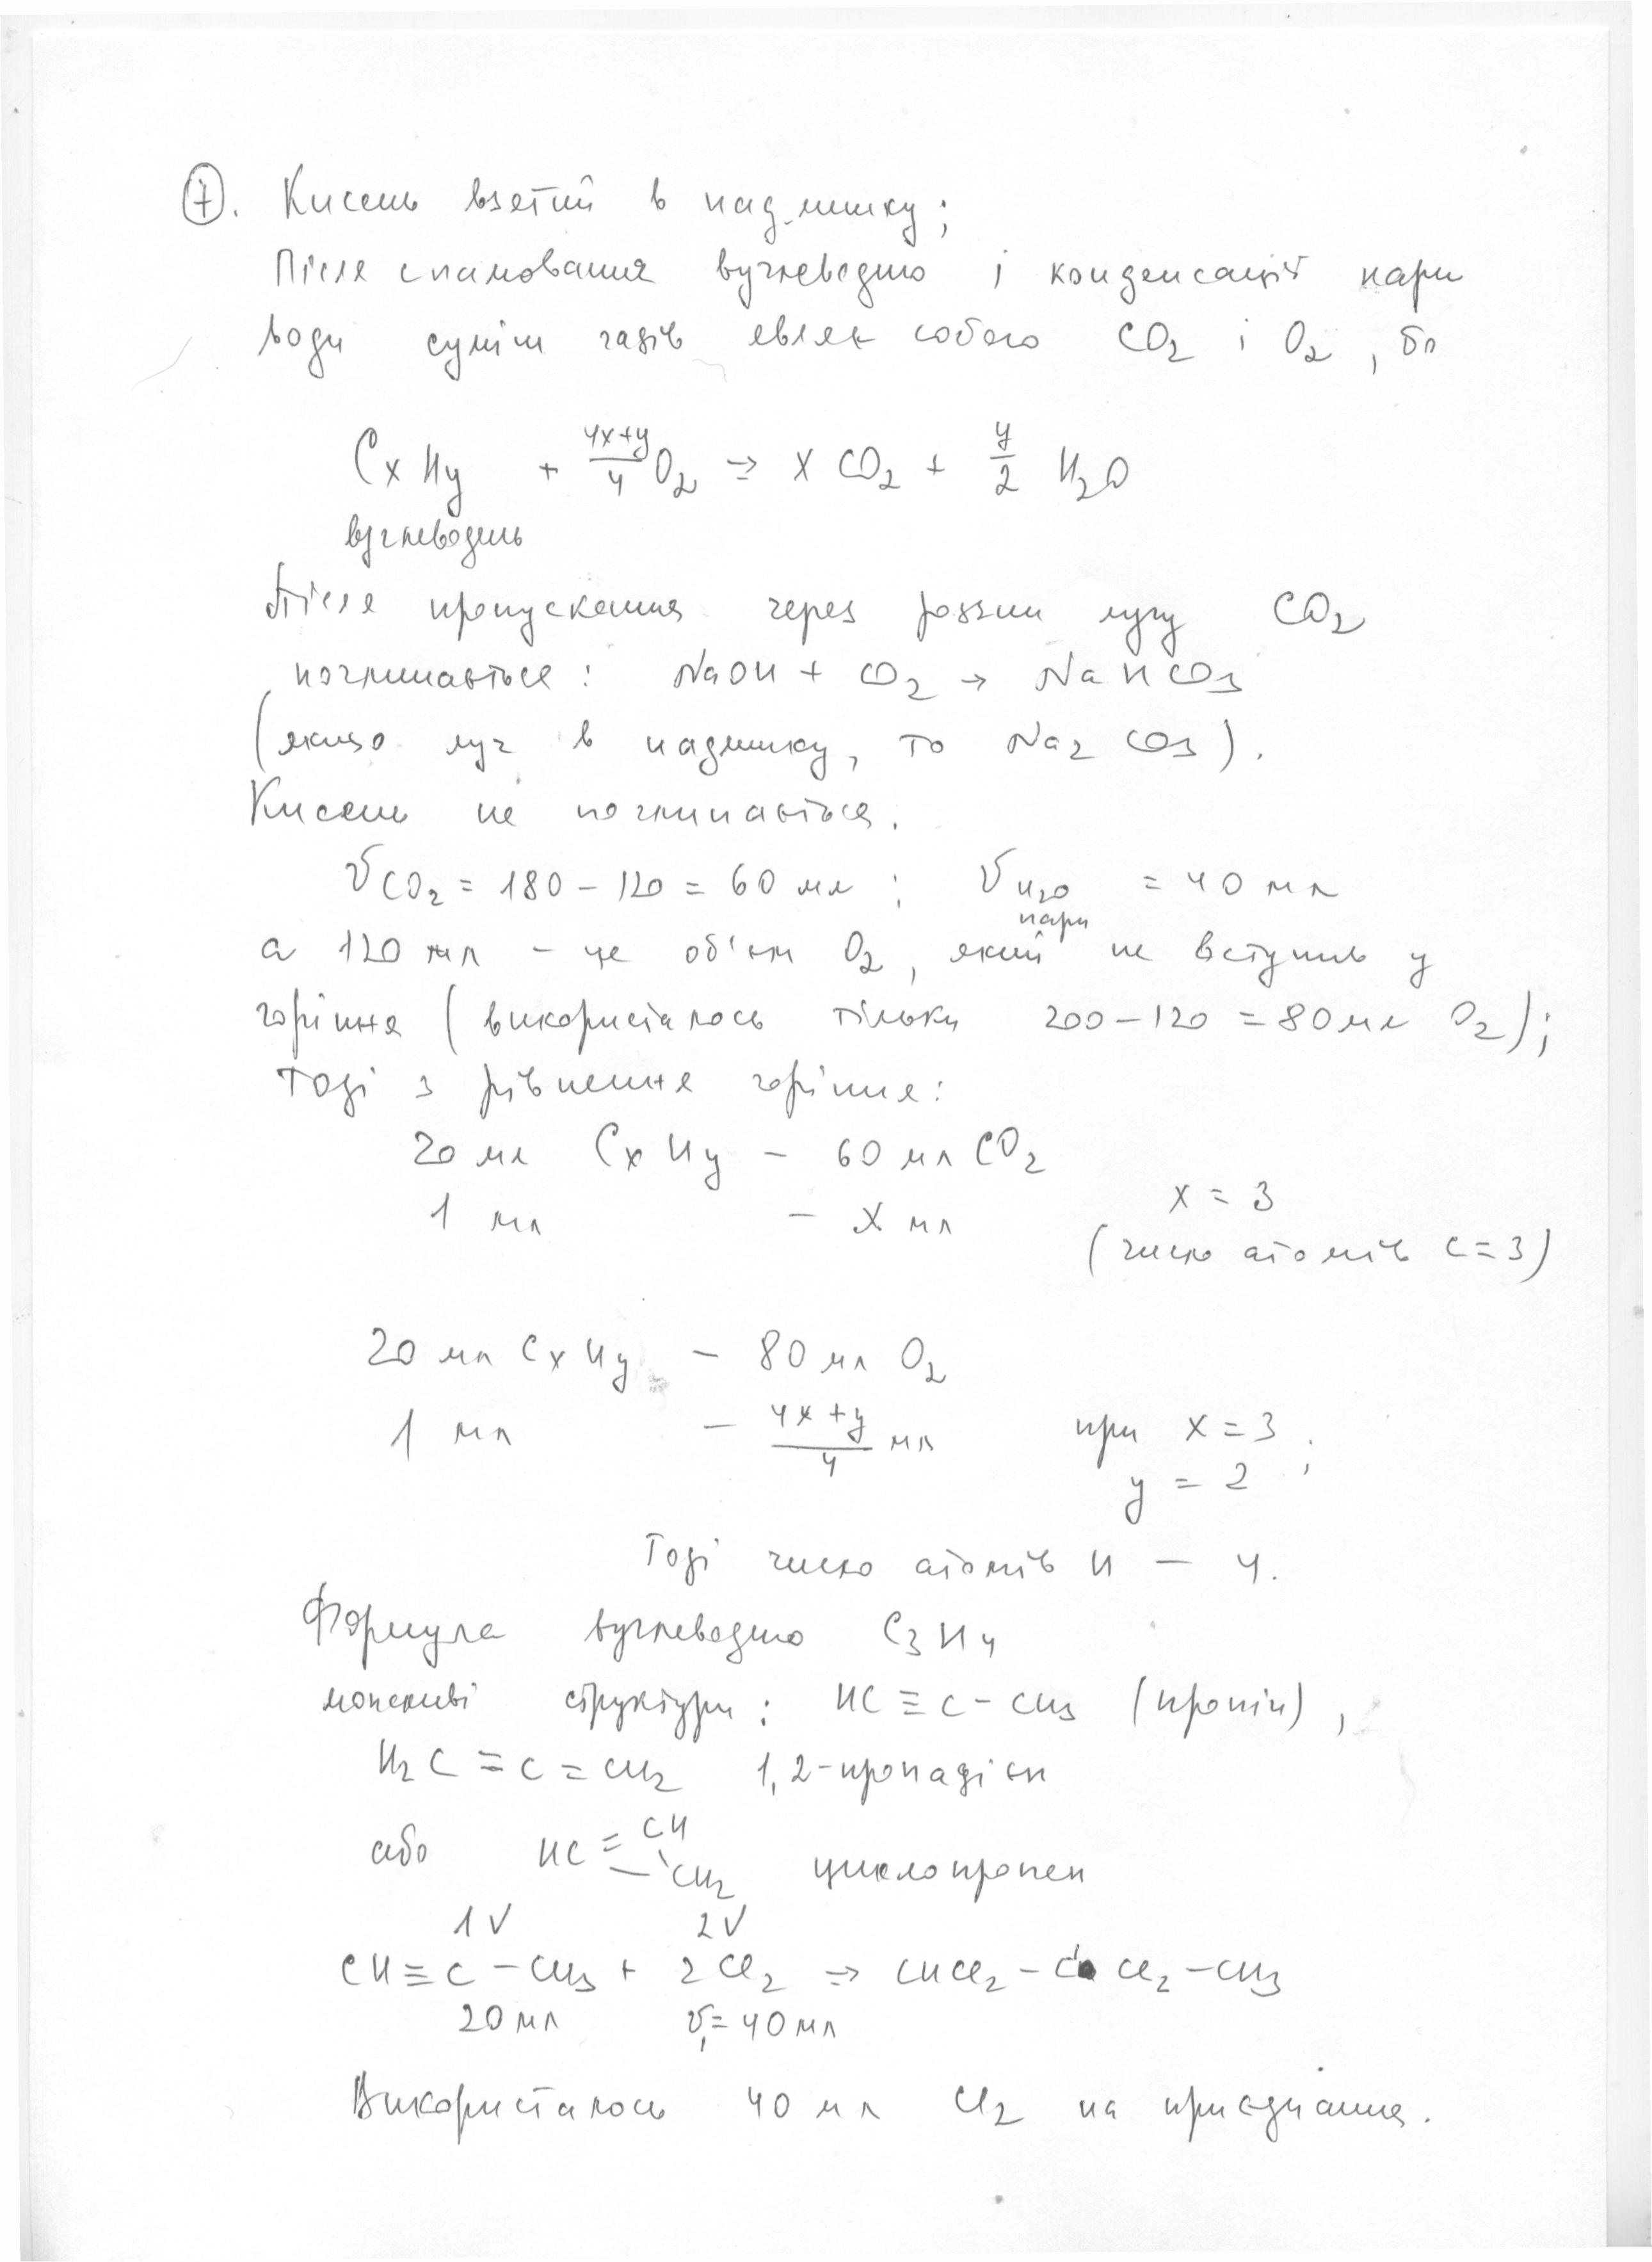 7. Кисень взятий в надлишку;
Після спалювання вуглеводню і конденсації пари
води суміш газів являє собою CO2 і O2, бо
CxHy + (4x+y)/4 O2 => x CO2 + y/2 H2O
вуглеводень
Після пропускання через розчин лугу CO2
поглинається: NaOH + CO2 → NaHCO3
(якщо луг в надлишку, то Na2CO3).
Кисень не поглинається.
VCO2 = 180 - 120 = 60 мл; VH2O = 40 мл
пари
а 120 мл - це об'єм O2, який не вступив у
горіння (використалось тільки 200 - 120 = 80 мл O2);
Тоді з рівняння горіння:
20 мл CxHy - 60 мл CO2
1 мл - x мл x = 3
(число атомів C = 3)
20 мл CxHy - 80 мл O2
1 мл - (4x+y)/4 мл при x = 3;
y = 2
Тоді число атомів H - 4.
Формула вуглеводню C3H4
можливі структури: HC≡C-CH3 (пропін),
H2C=C=CH2 1,2-пропадієн
або HC=CH-CH2 циклопропен
1V 2V
CH≡C-CH3 + 2Cl2 => CHCl2-CCl2-CH3
20 мл V1 = 40 мл
Використалось 40 мл Cl2 на приєднання.